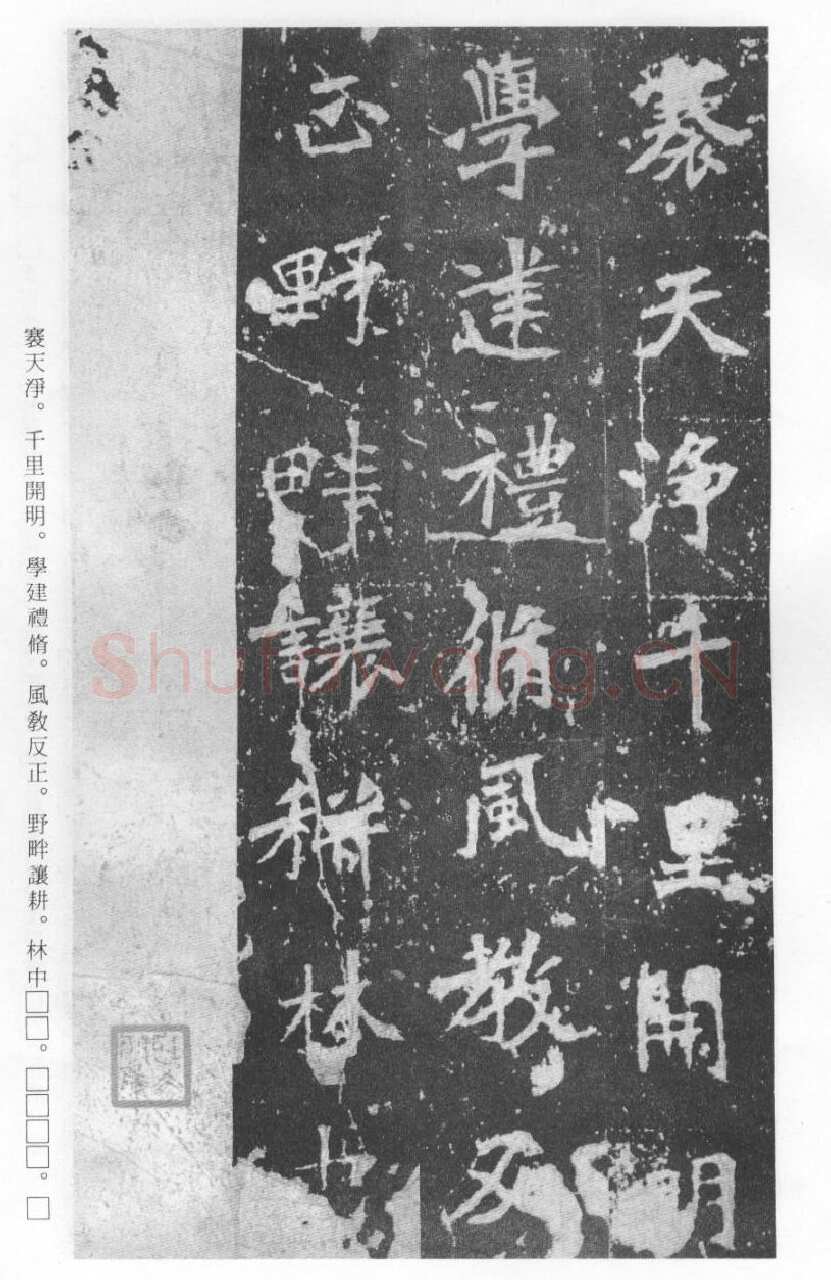 褰天淨千里開明
學建禮脩風教反
正野畔讓耕林中
褰天淨。千里開明。學建禮脩。風敎反正。野畔讓耕。林中□□。□□□□。□
Shufawang.CN